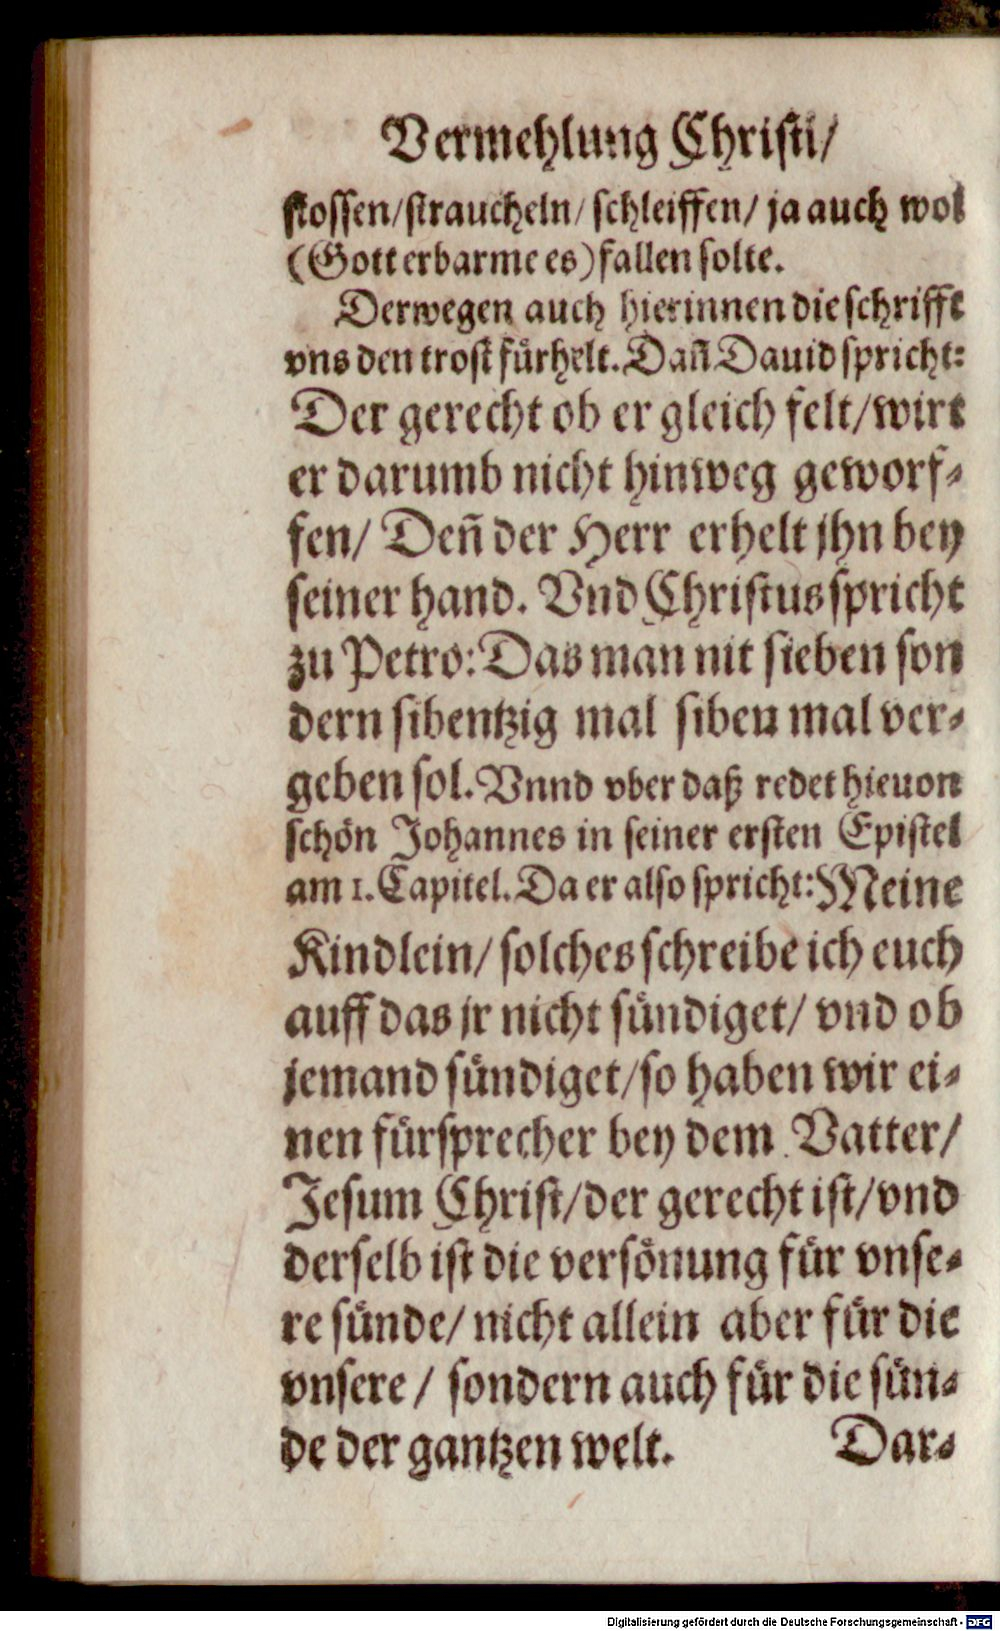 Vermehlung Christi/
stossen/straucheln/schleiffen/ ja auch wol
(Gott erbarme es) fallen solte.
Derwegen auch hierinnen die schrifft
vns den trost fürhelt. Dañ Dauid spricht:
Der gerecht ob er gleich felt/wirt
er darumb nicht hinweg geworf-
fen/ Deñ der Herr erhelt jhn bey
seiner hand. Vnd Christus spricht
zu Petro: Das man nit sieben son
dern sibentzig mal siben mal ver-
geben sol. Vnnd vber daß redet hieuon
schön Johannes in seiner ersten Epistel
am 1. Capitel. Da er also spricht: Meine
Kindlein/ solches schreibe ich euch
auff das jr nicht sündiget/ vnd ob
jemand sündiget/so haben wir ei-
nen fürsprecher bey dem Vatter/
Jesum Christ/der gerecht ist/vnd
derselb ist die versönung für vnse-
re sünde/ nicht allein aber für die
vnsere / sondern auch für die sün-
de der gantzen welt. Dar-
Digitalisierung gefördert durch die Deutsche Forschungsgemeinschaft - DFG